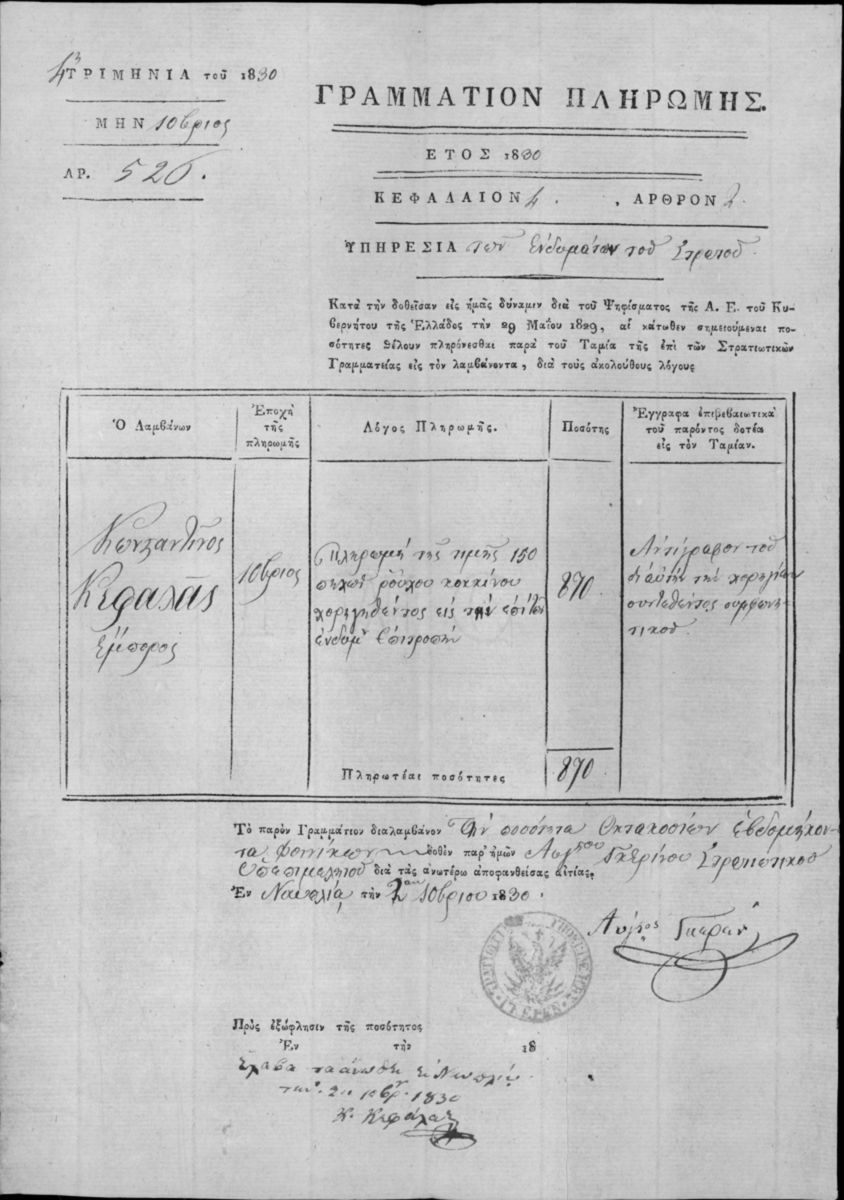 4 ΤΡΙΜΗΝΙΑ τοῦ 1830
ΜΗΝ 10βριος
ΑΡ. 526.
ΓΡΑΜΜΑΤΙΟΝ ΠΛΗΡΩΜΗΣ.
ΕΤΟΣ 1830
ΚΕΦΑΛΑΙΟΝ 4. , ΑΡΘΡΟΝ 2.
ὙΠΗΡΕΣΙΑ τῶν Ἐνδυμάτων τοῦ Στρατοῦ.
Κατὰ τὴν δοθεῖσαν εἰς ἡμᾶς δύναμιν διὰ τοῦ Ψηφίσματος τῆς Α. Ε. τοῦ Κυ-
βερνήτου τῆς Ἑλλάδος τὴν 29 Μαΐου 1829, αἱ κάτωθεν σημειούμεναι πο-
σότητες θέλουν πληρόνεσθαι παρὰ τοῦ Ταμία τῆς ἐπὶ τῶν Στρατιωτικῶν
Γραμματείας εἰς τὸν λαμβάνοντα, διὰ τοὺς ἀκολούθους λόγους
Ὁ Λαμβάνων
Ἐποχὴ
τῆς
πληρωμῆς
Λόγος Πληρωμῆς.
Ποσότης
Ἔγγραφα ἐπιβεβαιωτικὰ
τοῦ παρόντος δοτέα
εἰς τὸν Ταμίαν.
Κωνσταντῖνος
Κεφαλᾶς
ἔμπορος
10βριος
Πληρωμὴ τῆς τιμῆς 150
πηχῶν ῥούχου κοκκίνου
χορηγηθέντος εἰς τὴν ἐπὶ τῶν
ἐνδυμ. Ἐπιτροπὴν
870
Ἀντίγραφον τοῦ
δι' αὐτὴν τὴν χορηγίαν
συντεθέντος συμφωνη-
τικοῦ.
Πληρωτέαι ποσότητες
870
Τὸ παρὸν Γραμμάτιον διαλαμβάνον τὴν ποσότητα Ὀκτακοσίων ἑβδομήκον-
τα φοινίκων δοθὲν παρ' ἡμῶν Αὐγ^στου Γκερίνου Στρατιωτικοῦ
Ὑπεπιμελητοῦ διὰ τὰς ἀνωτέρω ἀποφανθείσας αἰτίας.
Ἐν Ναυπλίᾳ τὴν 2 10βρίου 1830.
Αὔγ^στος Γκερίν
Πρὸς ἐξώφλησιν τῆς ποσότητος
Ἐν τὴν 18
Ἔλαβα τὰ ἄνωθεν ἐν Ναυπλίῳ
1830
Κ. Κεφάλας